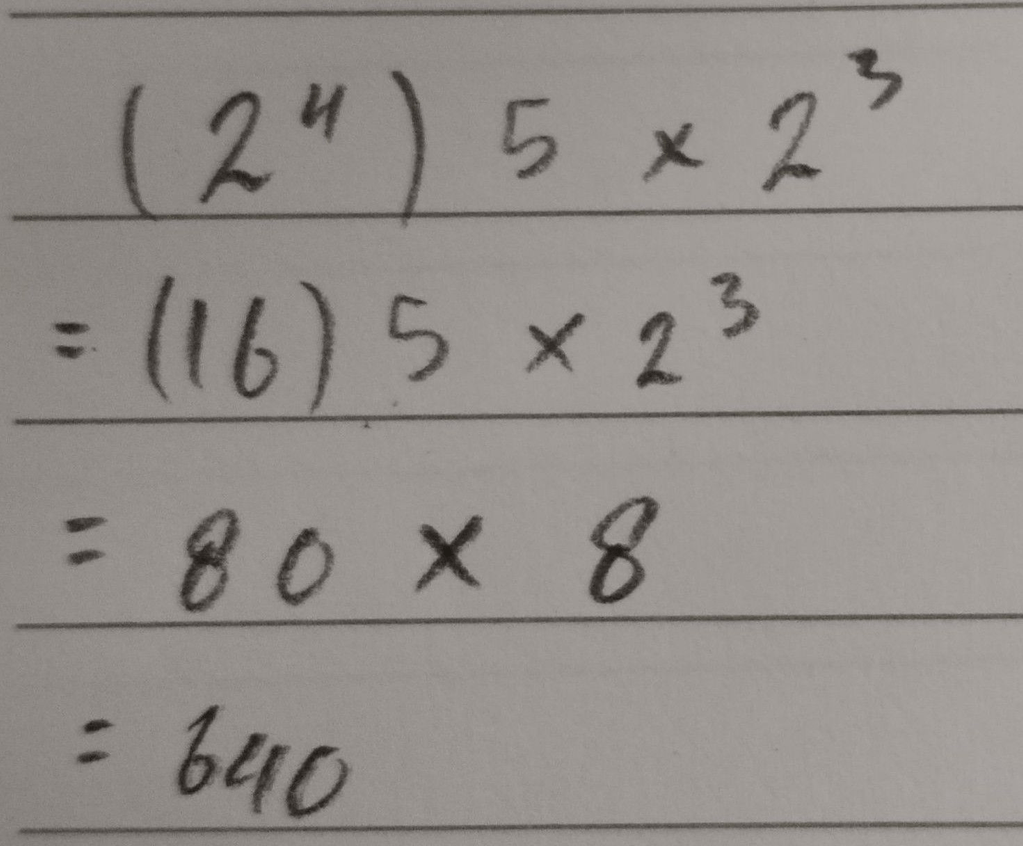 (2⁴) 5 × 2³
= (16) 5 × 2³
= 80 × 8
= 640